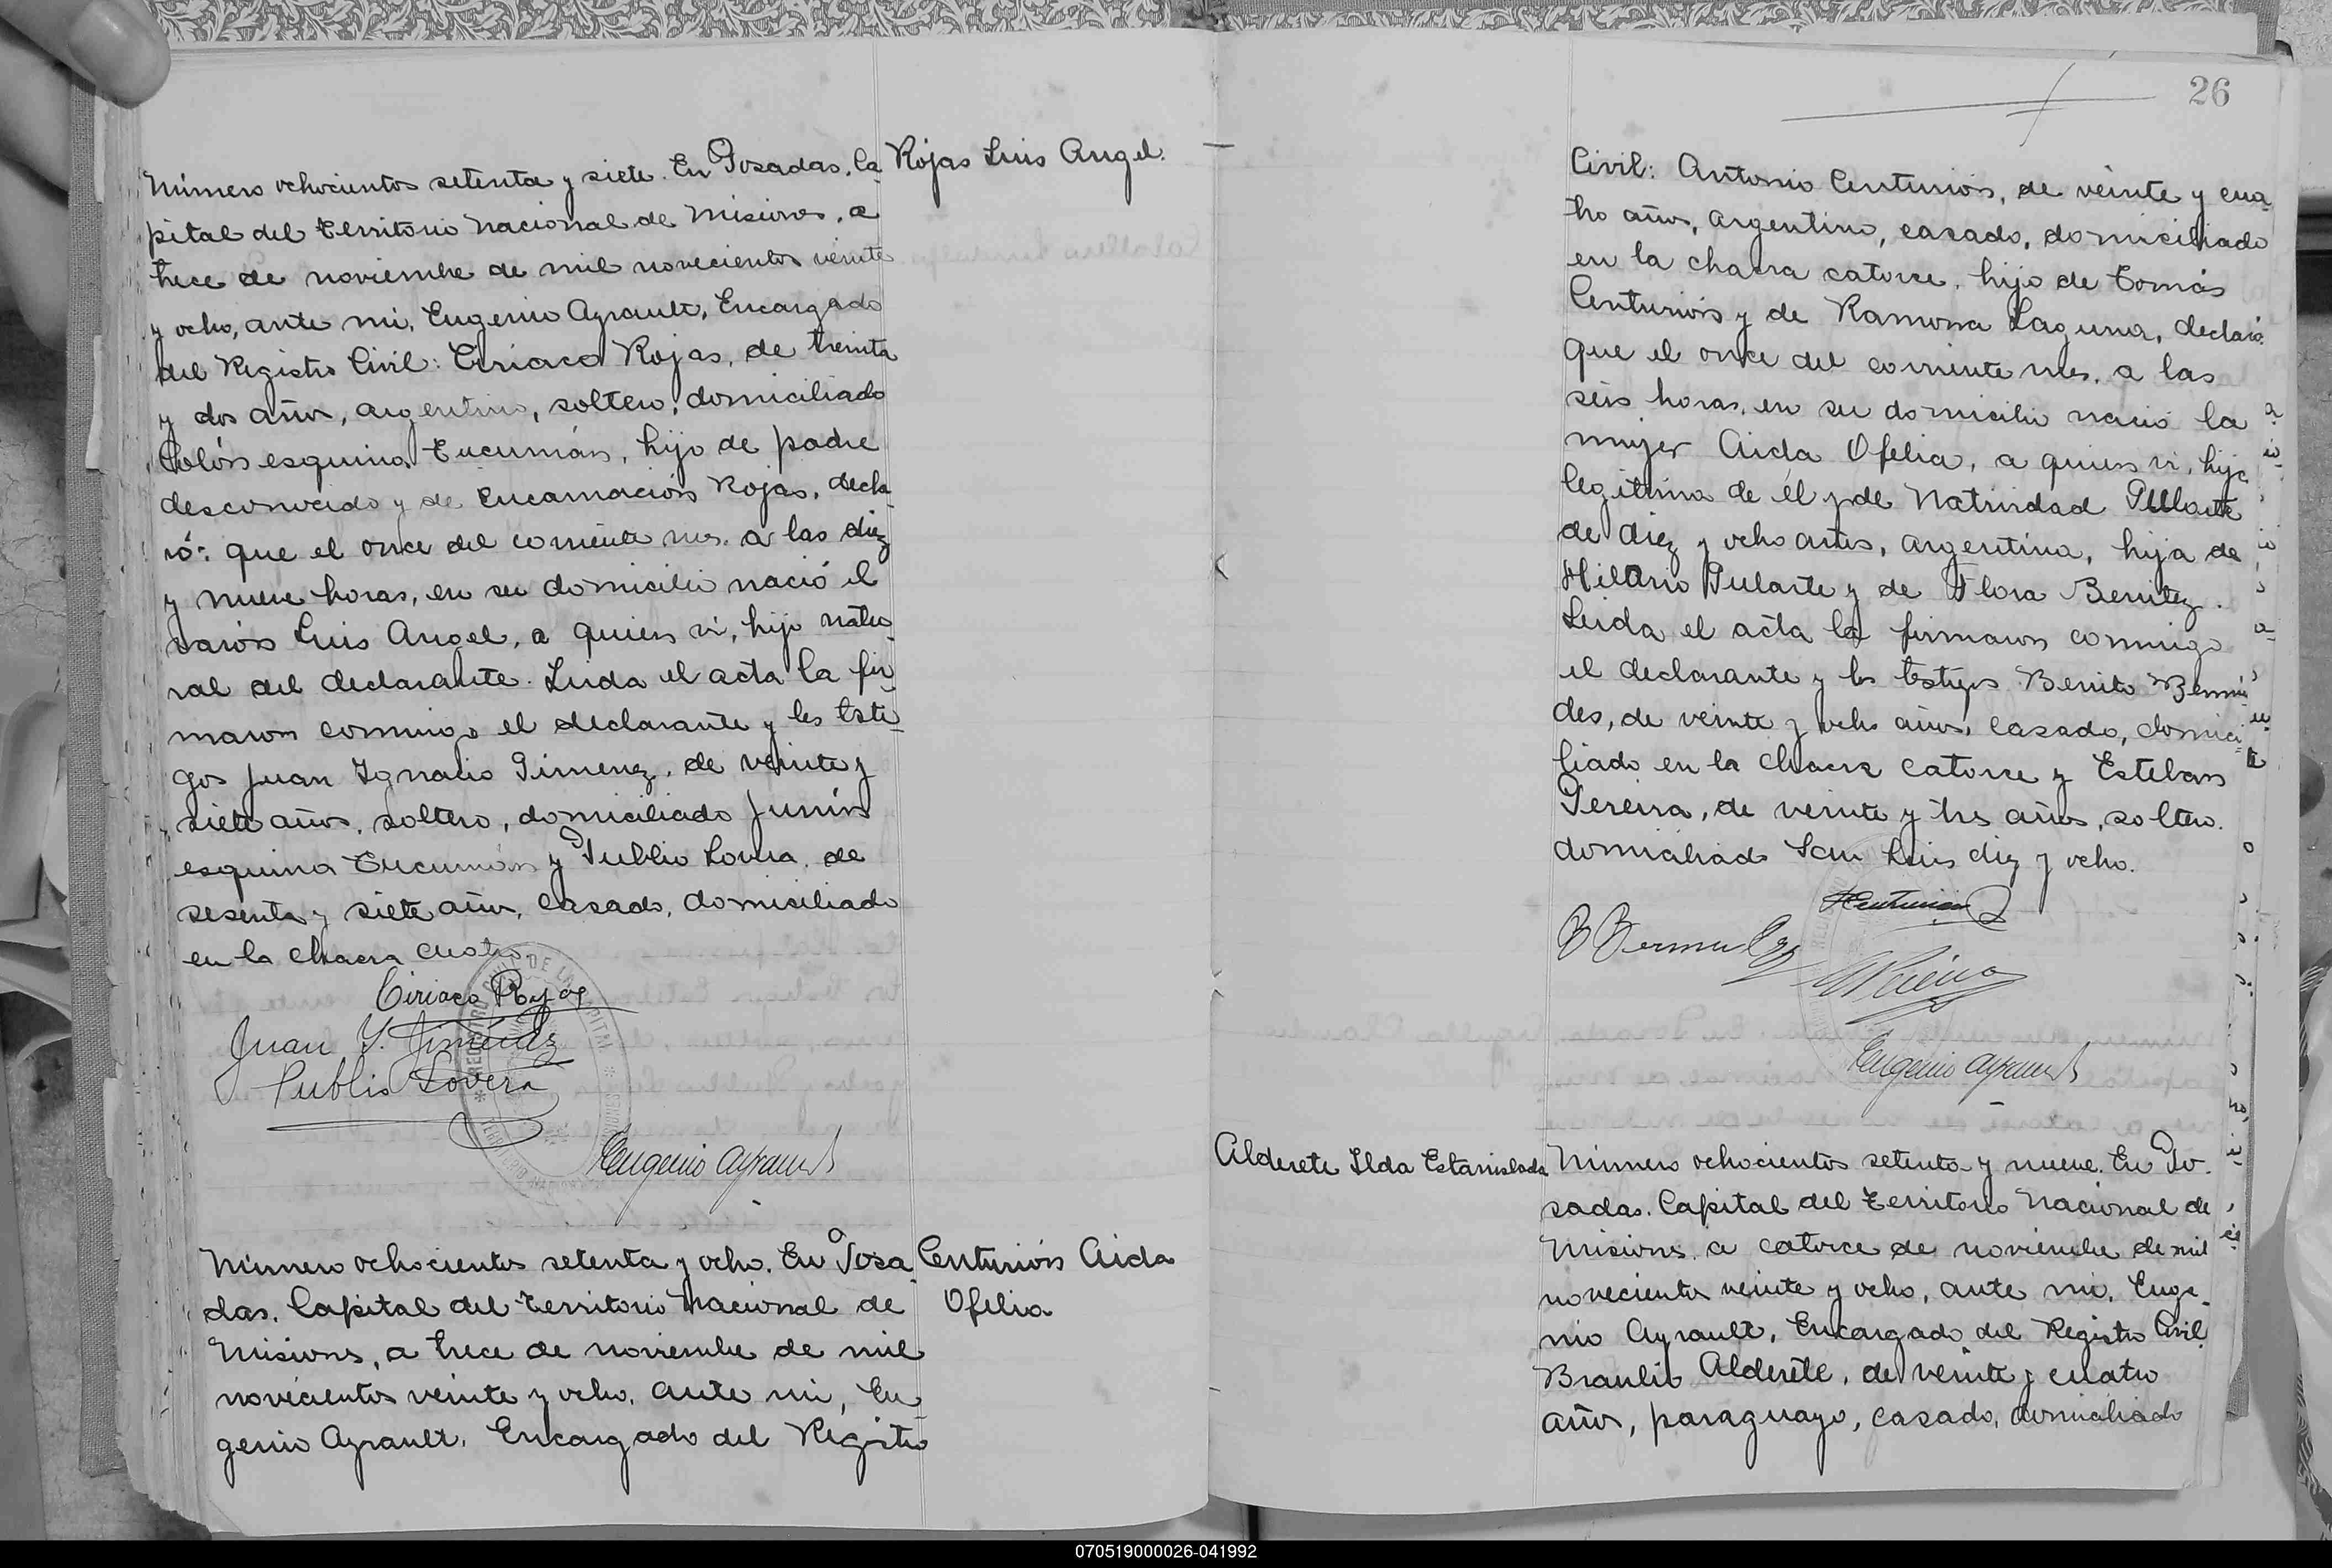 Rojas Luis Angel.
Número ochocientos setenta y siete. En Posadas, Ca
pital del Territorio Nacional de Misiones, a
trece de noviembre de mil novecientos veinte
y ocho, ante mi, Eugenio Ayrault, Encargado
del Registro Civil: Ciriaco Rojas, de treinta
y dos años, argentino, soltero, domiciliado
Colón esquina Tucumán, hijo de padre
desconocido y de Encarnación Rojas, decla-
ró: que el once del corriente mes, a las diez
y nueve horas, en su domicilio nació el
varón Luis Angel, a quien vi, hijo natu-
ral del declarante. Leida el acta la fir-
maron conmigo el declarante y los testi-
gos Juan Ignacio Gimenez, de veinte y
siete años, soltero, domiciliado Junín
esquina Tucumán y Publio Lovera, de
sesenta y siete años, casado, domiciliado
en la chacra cuatro.
Ciriaco Rojas
Juan Y. Jiménez
Publio Lovera
Eugenio Ayrault
Centurión Aida
Ofelia
Número ochocientos setenta y ocho. En Posa-
das, Capital del Territorio Nacional de
Misiones, a trece de noviembre de mil
novecientos veinte y ocho, ante mi, Eu-
genio Ayrault, Encargado del Registro
26
Civil: Antonio Centurión, de veinte y cua-
tro años, argentino, casado, domiciliado
en la chacra catorce, hijo de Tomás
Centurión y de Ramona Laguna, declaró:
que el once del corriente mes, a las
seis horas, en su domicilio nació la
mujer Aida Ofelia, a quien vi, hija
legitima de él y de Natividad Pularte
de diez y ocho años, argentina, hija de
Hilario Pularte y de Flora Benitez.
Leida el acta la firmaron conmigo
el declarante y los testigos Benito Bermu-
des, de veinte y ocho años, casado, domici-
liado en la chacra catorce y Esteban
Pereira, de veinte y tres años, soltero,
domiciliado San Luis diez y ocho.
Centurión
B Bermudez
Eugenio Ayrault
Alderete Ilda Estanislada
Número ochocientos setenta y nueve. En Po-
sadas, Capital del Territorio Nacional de
Misiones, a catorce de noviembre de mil
novecientos veinte y ocho, ante mi, Euge-
nio Ayrault, Encargado del Registro Civil
Braulio Alderete, de veinte y cuatro
años, paraguayo, casado, domiciliado
070519000026-041992